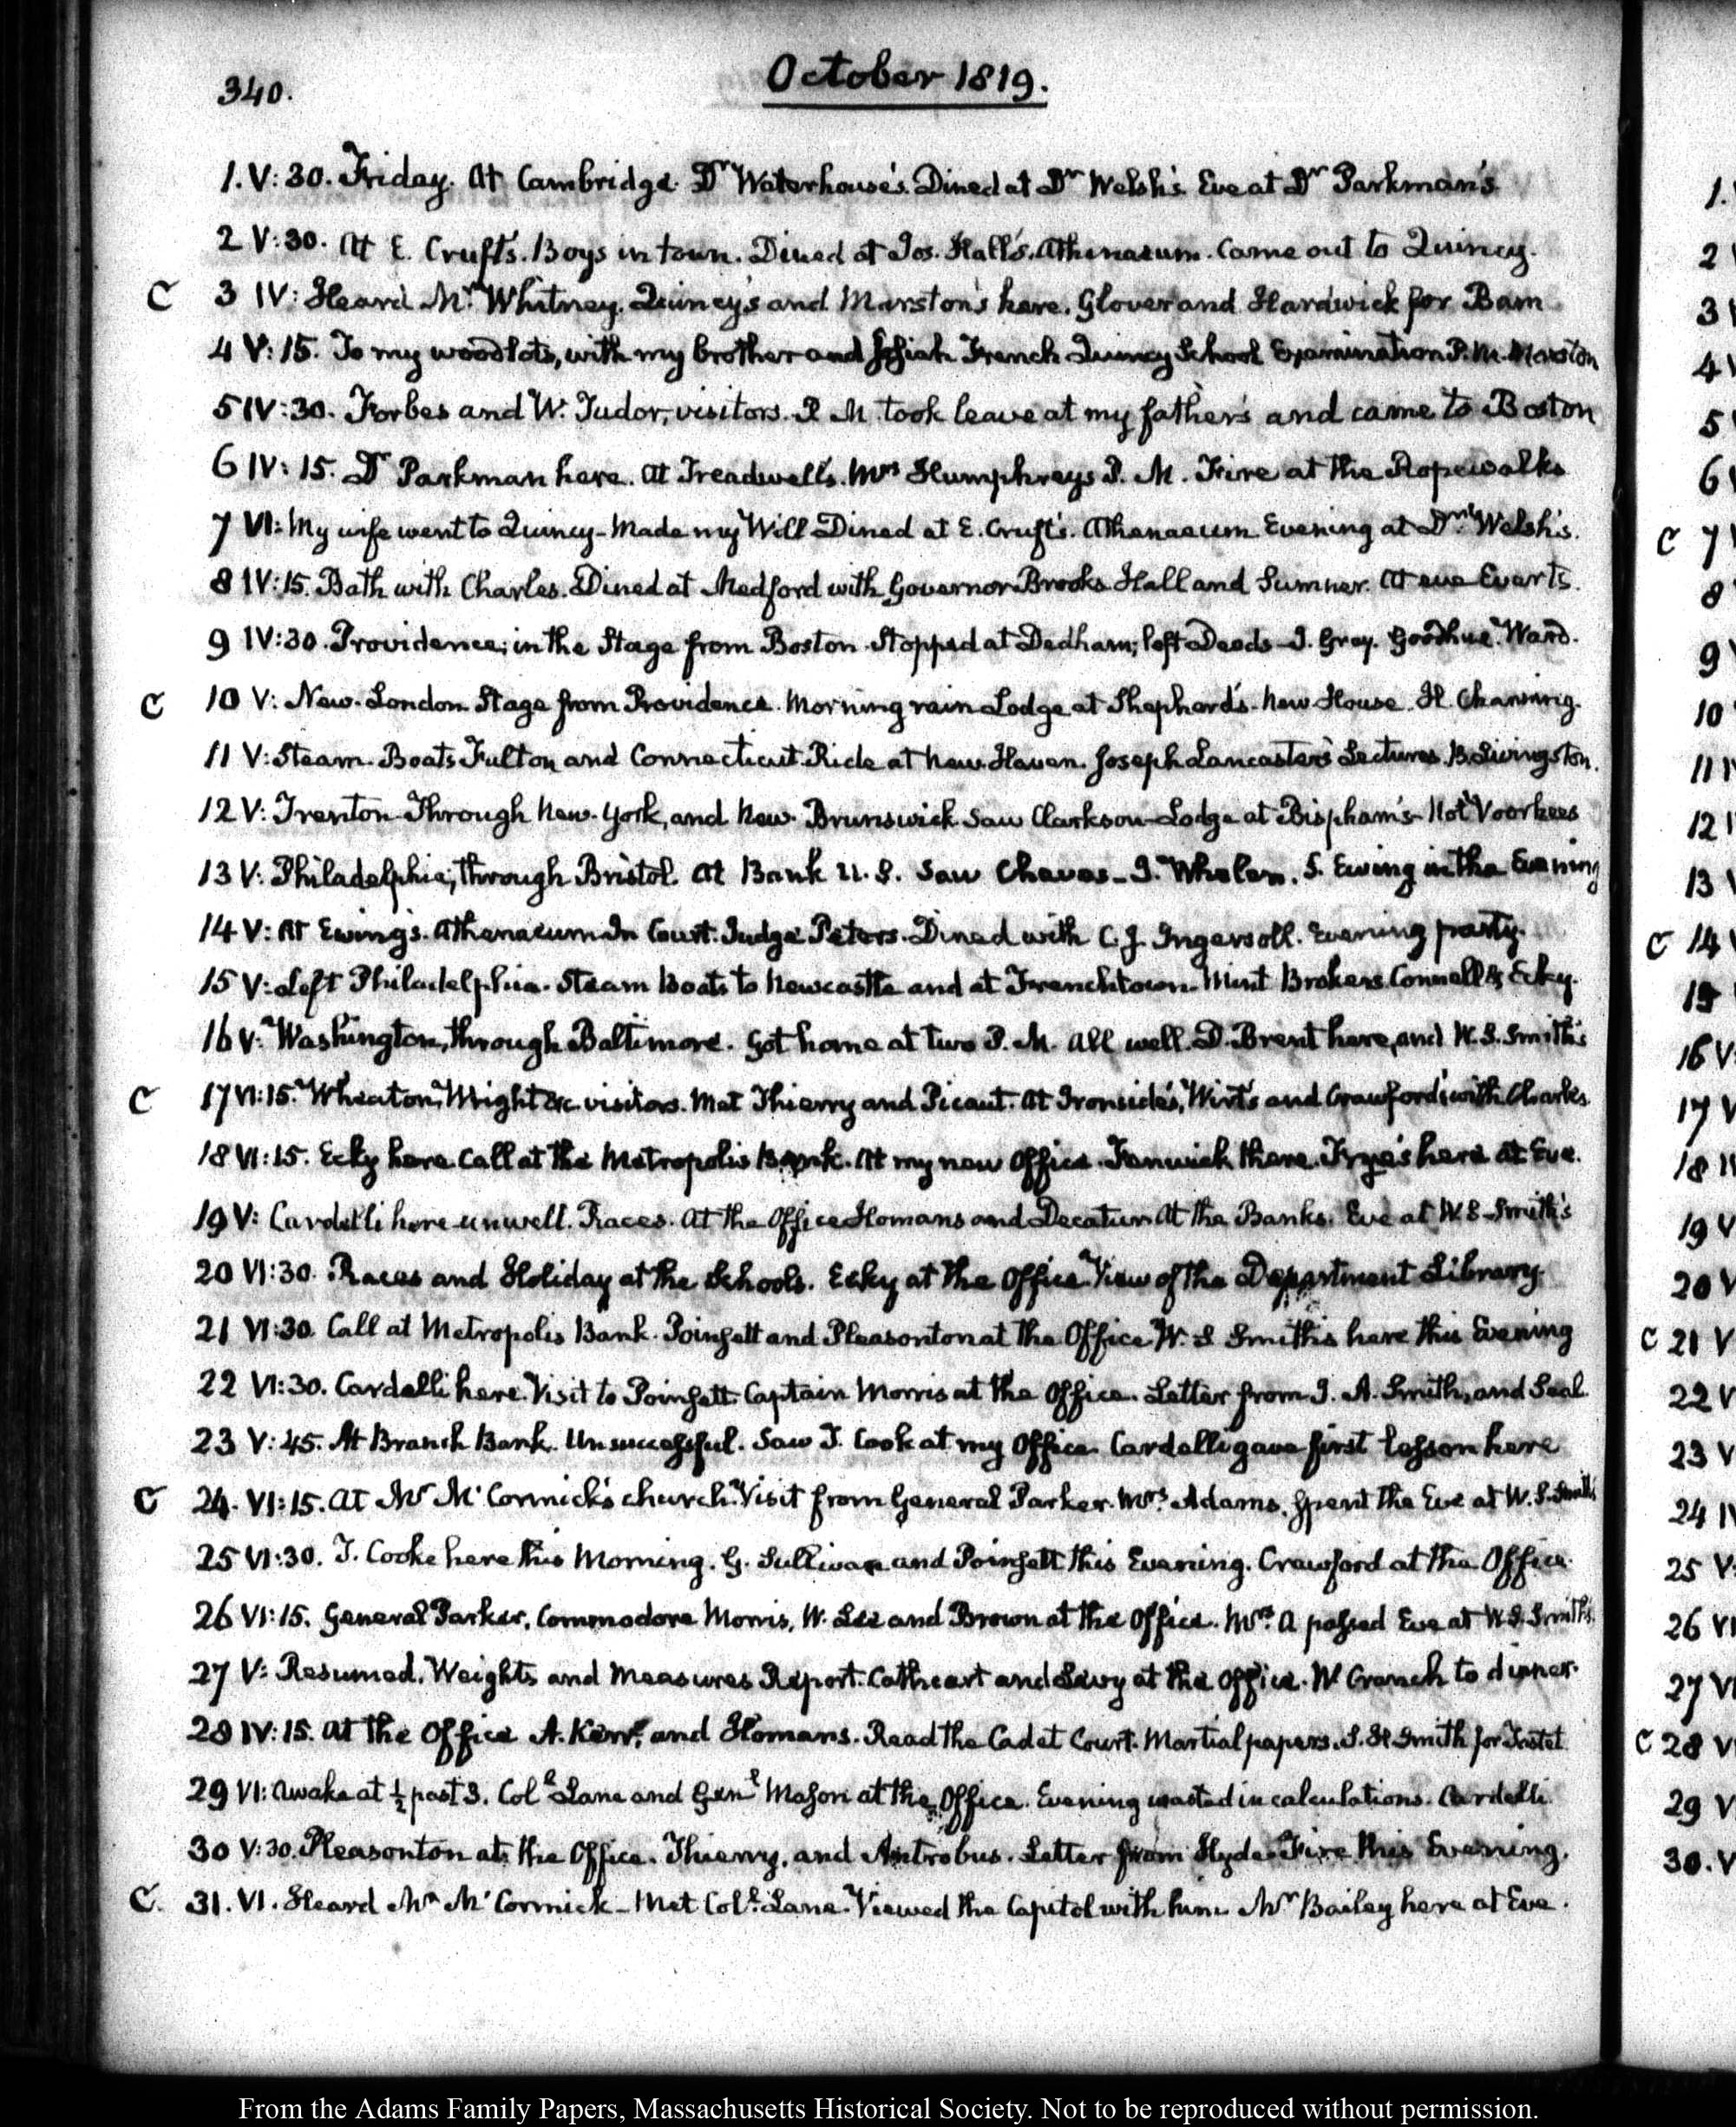 340.
October 1819.
1. V:30. Friday. At Cambridge. Dr Waterhouse's. Dined at Dr Welsh's. Eve at Dr Parkman's
2 V:30. At E. Cruft's. Boys in town. Dined at Jos. Hall's. Athenaeum. Came out to Quincy.
C 3 IV: Heard Mr Whitney. Quincy's and Marston's here. Glover and Hardwick for Barn
4 V:15. To my woodlots, with my brother and French Quincy School Examination P.M. Marston
5 IV:30. Forbes and W. Tudor, visitors. P M took leave at my father's and came to Boston
6 IV:15. Dr Parkman here. At Treadwell's. Mrs Humphreys P. M. Fire at the Ropewalks
7 VI: My wife went to Quincy - Made my Will Dined at E. Cruft's. Athenaeum Evening at Welsh's.
8 IV:15. Bath with Charles. Dined at Medford with Governor Brooks Hall and Sumner. At eve Everts.
9 IV:30. Providence; in the Stage from Boston. Stopped at Dedham; left Deeds - J. Gray. Goodhue. Ward.
C 10 V: New-London Stage from Providence. Morning rain Lodge at Shephard's - New House. H. Channing.
11 V: Steam-Boats Fulton and Connecticut. Ride at New-Haven. Joseph Lancaster's Lectures. B. Livingston.
12 V: Trenton Through New-York, and New-Brunswick Saw Clarkson - Lodge at Bispham's - Not Voorhees
13 V: Philadelphia, through Bristol. At Bank U.S. Saw Cheves - J. Whelen. S. Ewing in the Evening
14 V: At Ewing's. Athenaeum In Court. Judge Peters. Dined with C. J. Ingersoll. Evening party.
15 V: Left Philadelphia. Steam Boats to Newcastle and at Frenchtown. Mint Brokers. Connell & Ecky.
16 V: Washington, through Baltimore. Got home at two P.M. All well. D. Brent here, and W. S. Smith's
C 17 VI:15. Wheaton, Wright &c visitors. Met Thierry and Picaut. At Ironside's, Wirt's and Crawford's with Charles
18 VI:15. Ecky here. Call at the Metropolis Bank. At my new Office. Fenwick there. Frye's here at Eve.
19 V: Cardelli here unwell. Races. At the Office Homans and Decatur. At the Banks. Eve at W. S. Smith's
20 VI:30. Races and Holiday at the Schools. Ecky at the Office. View of the Department Library.
21 VI:30. Call at Metropolis Bank. Poinsett and Pleasonton at the Office. W. S Smith's here this Evening
22 VI:30. Cardelli here. Visit to Poinsett. Captain Morris at the Office. Letter from J. A. Smith, and Seal
23 V:45. At Branch Bank. Unsuccessful. Saw J. Cook at my Office. Cardelli gave first lesson here
C 24. VI:15. At Mr Mc Cormick's church. Visit from General Parker. Mrs Adams spent the Eve at W. S. Smith's
25 VI:30. J. Cooke here this Morning. G. Sullivan and Poinsett this Evening. Crawford at the Office.
26 VI:15. General Parker, Commodore Morris, W. Lee and Brown at the Office. Mrs A passed Eve at W. S. Smith's.
27 V: Resumed, Weights and Measures Report. Cathcart and Levy at the Office. W Cranch to dinner.
28 IV:15. At the Office A. Kerr, and Homans. Read the Cadet Court-Martial papers. S. H. Smith for
29 VI: Awake at ½ past 3. Coll Lane and Genl Mason at the Office. Evening wasted in calculations. Cardelli
30 V:30. Pleasonton at the Office. Thierry, and Antrobus. Letter from Hyde. Fire this Evening.
C. 31. VI. Heard Mr Mc Cormick - Met Coll. Lane. Viewed the Capitol with him. Mr Bailey here at Eve.
1.
2
3
4
5
6
C 7
8
9
10
11
12
13
C 14
15
16 V
17 V
18
19 V
20 V
C 21 V
22 V
23 V
24 IV
25 V
26 VI
27 VI
C 28 V
29 V
30. V
From the Adams Family Papers, Massachusetts Historical Society. Not to be reproduced without permission.